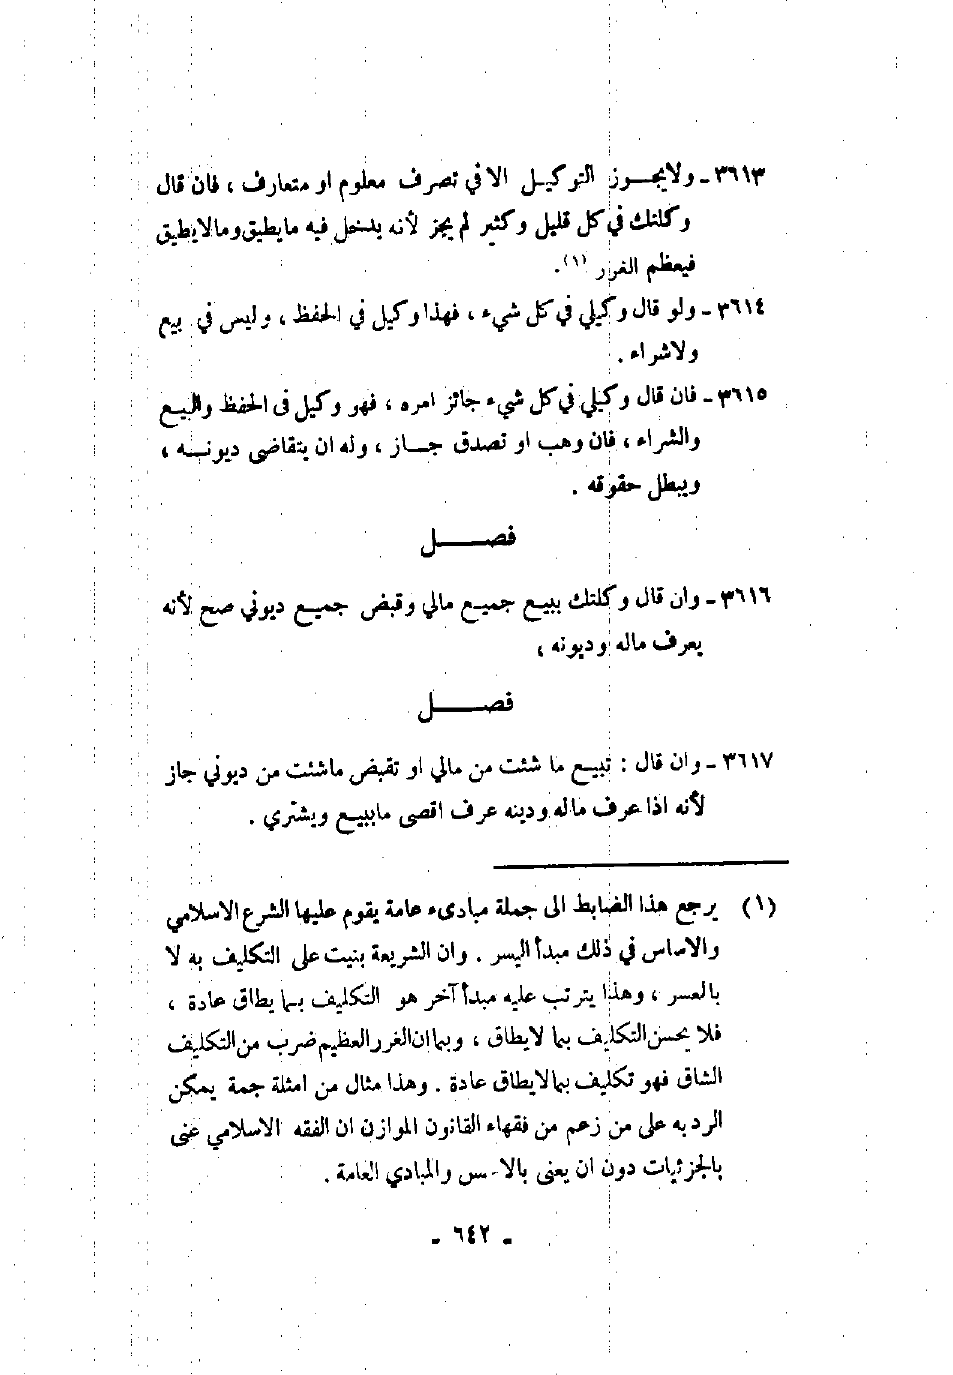 ٣٦١٣ ـ ولايجـــوز التوكيـل الا في تصرف معلوم او متعارف ، فان قال
وكلتك في كل قليل وكثير لم يجز لأنه يدخل فيه مايطيق ومالايطيق
فيعظم الغرر (١) .
٣٦١٤ ـ ولو قال وكيلي في كل شيء ، فهذا وكيل في الحفظ ، وليس في بيع
ولاشراء .
٣٦١٥ ـ فان قال وكيلي في كل شيء جائز امره ، فهو وكيل فى الحفظ والبيـع
والشراء ، فان وهب او تصدق جـــاز ، وله ان يتقاضى ديونـــه ،
ويبطل حقوقه .
فصــــــل
٣٦١٦ ـ وان قال وكلتك ببيـع جميـع مالي وقبض جميـع ديوني صح لأنه
يعرف ماله وديونه ،
فصــــــل
٣٦١٧ ـ وان قال : تبيـع ما شئت من مالي او تقبض ماشئت من ديوني جاز
لأنه اذا عرف ماله ودينه عرف اقصى مايبيـع ويشتري .
(١) يرجع هذا الضابط الى جملة مبادىء عامة يقوم عليها الشرع الاسلامي
والاساس في ذلك مبدأ اليسر . وان الشريعة بنيت على التكليف به لا
بالعسر ، وهذا يترتب عليه مبدأ آخر هو التكليف بما يطاق عادة ،
فلا يحسن التكليف بما لايطاق ، وبما ان الغرر العظيم ضرب من التكليف
الشاق فهو تكليف بما لايطاق عادة . وهذا مثال من امثلة جمة يمكن
الرد به على من زعم من فقهاء القانون الموازن ان الفقه الاسلامي عنى
بالجزئيات دون ان يعنى والمبادي العامة .
ـ ٦٤٢ ـ